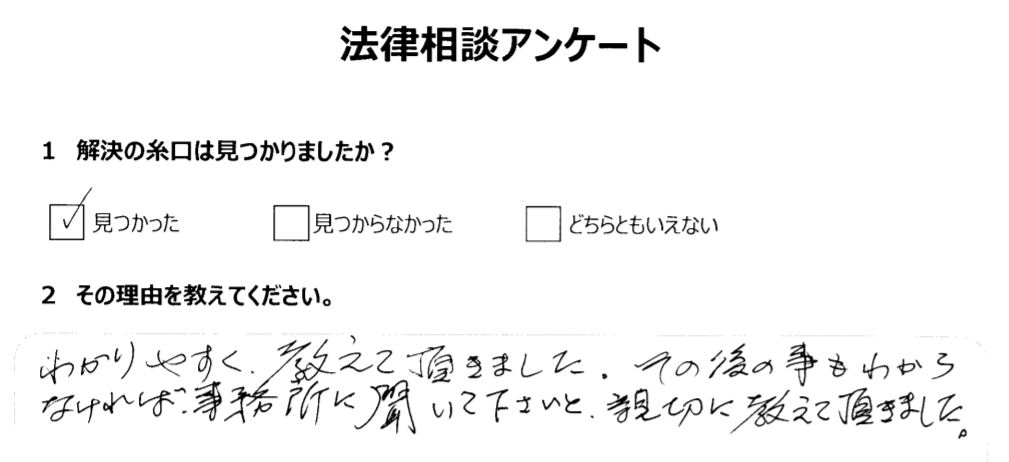 法律相談アンケート
1 解決の糸口は見つかりましたか?
見つかった 見つからなかった どちらともいえない
2 その理由を教えてください。
わかりやすく、教えて頂きました。その後の事もわから
なければ、事務所に聞いて下さいと、親切に教えて頂きました。